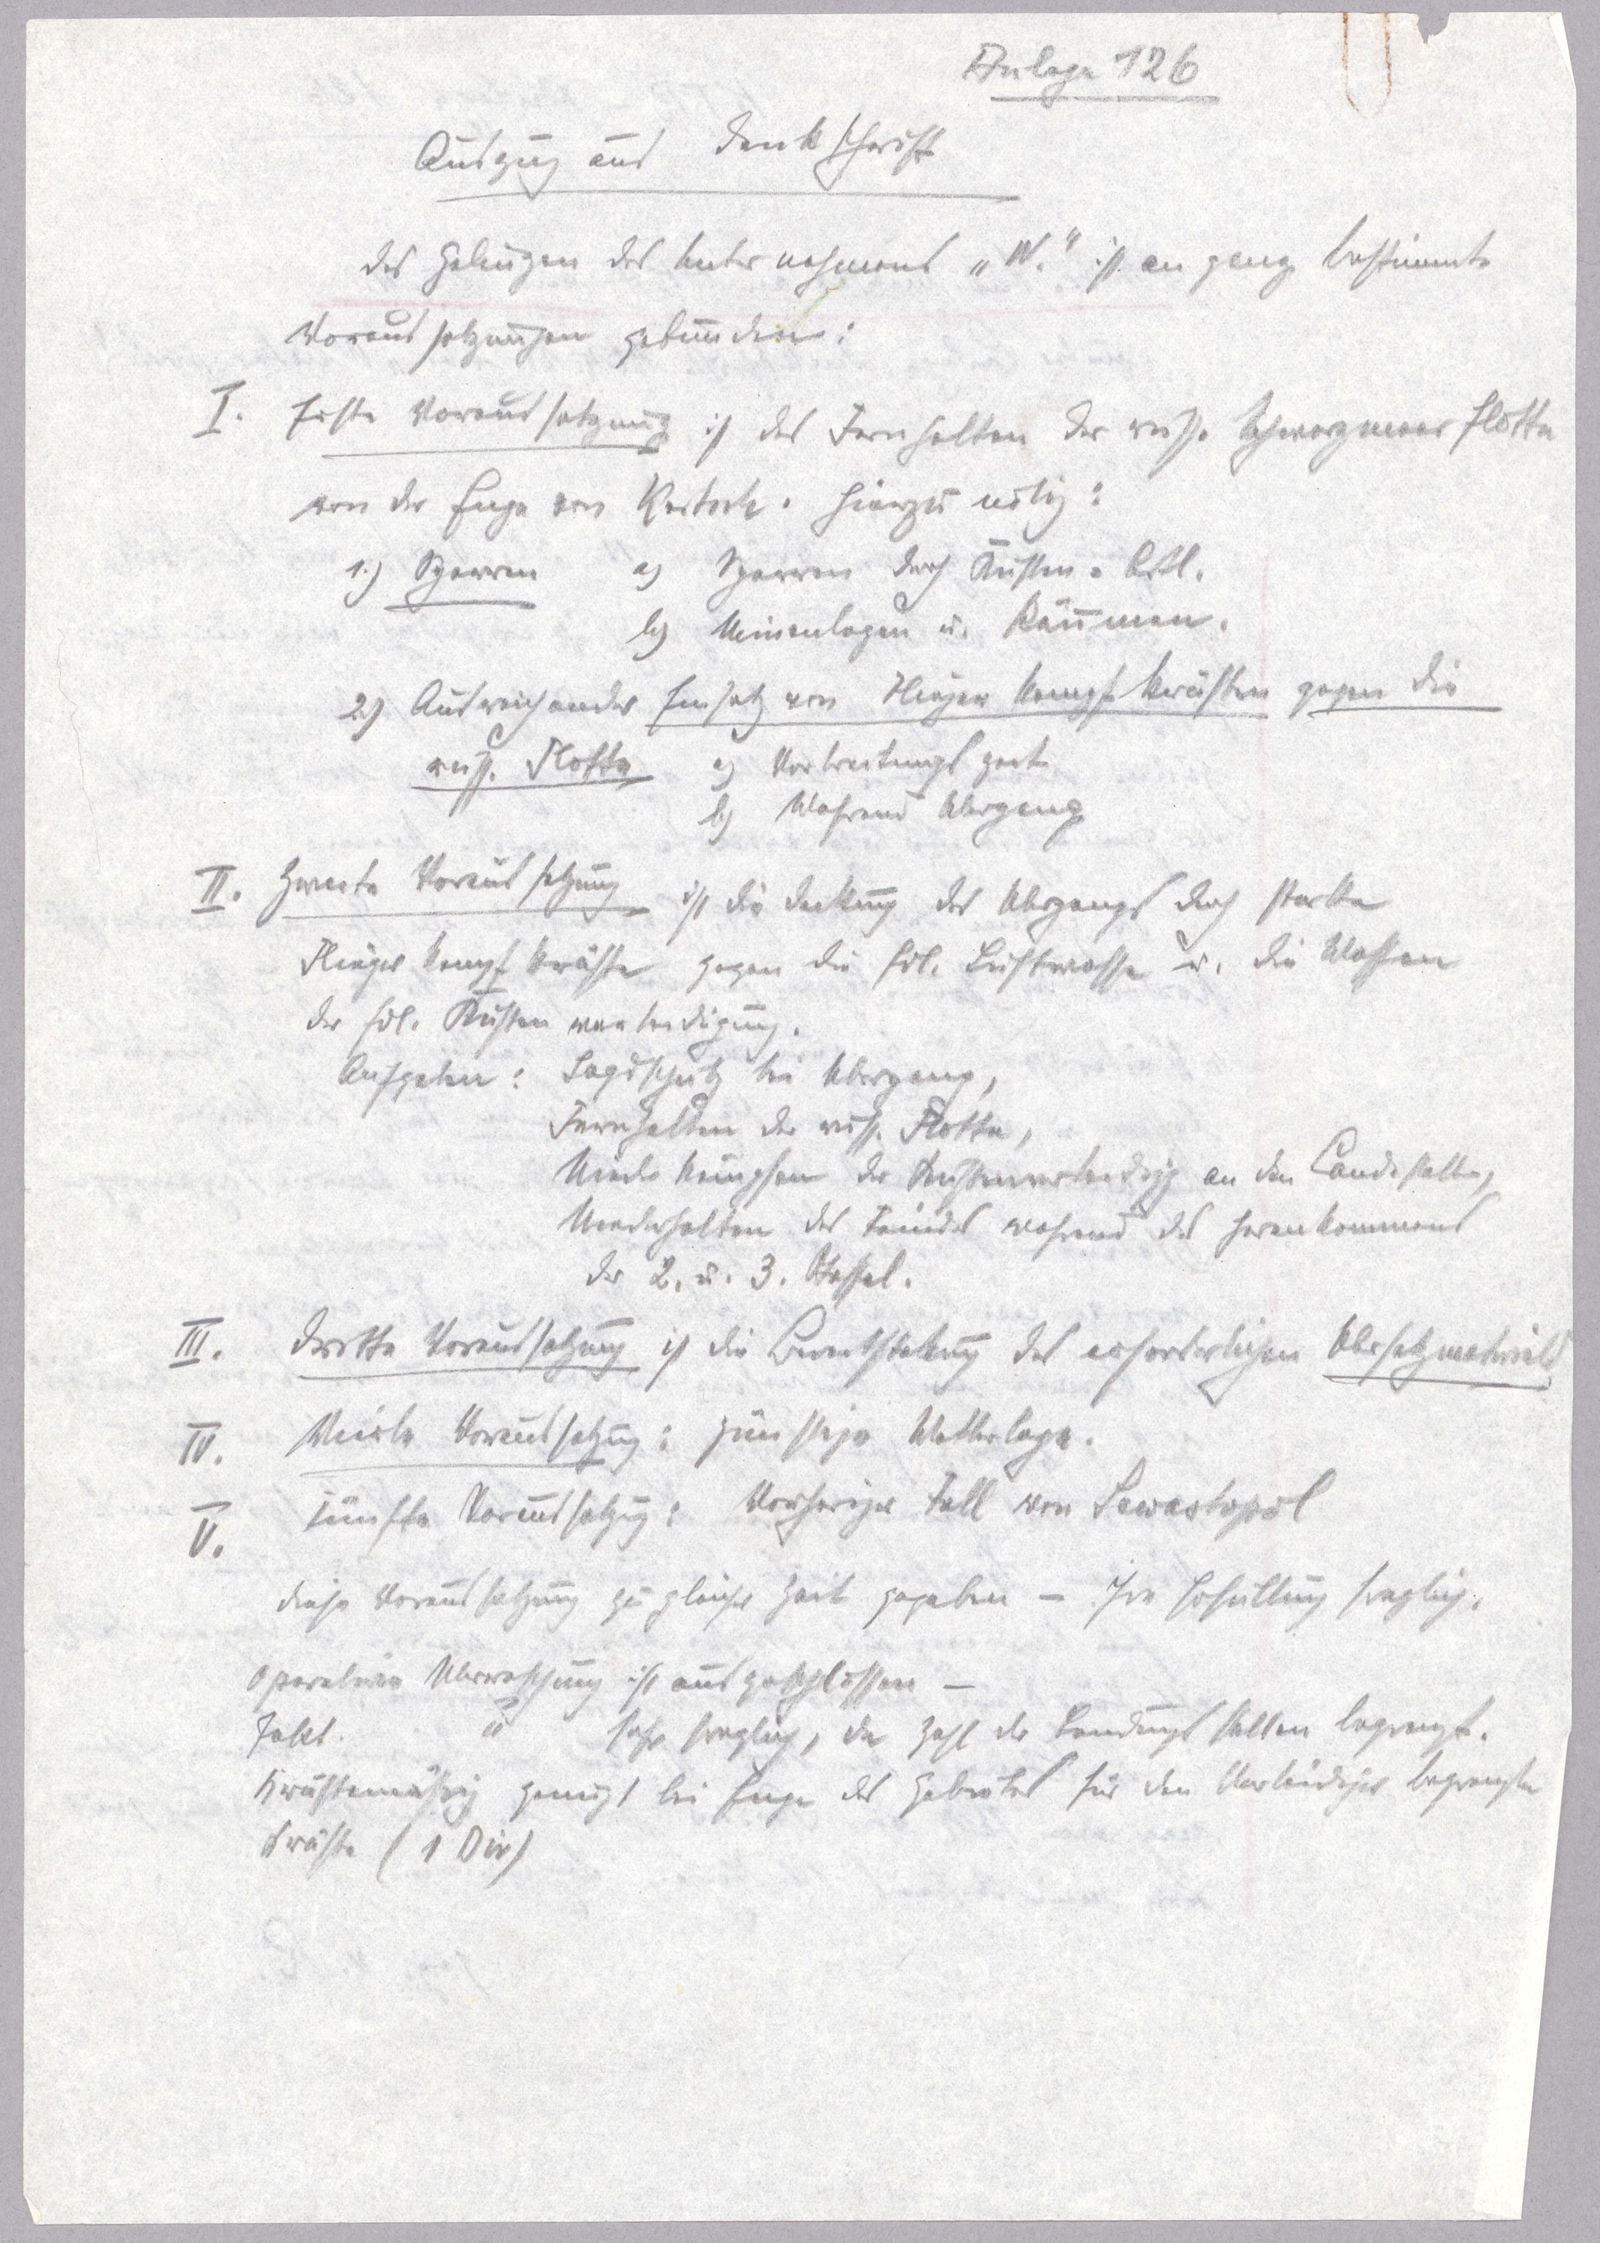 Anlage 126
Auszug aus Denkschrift
Das Gelingen des Unternehmens „W." ist an ganz bestimmte
Voraussetzungen gebunden:
I. Erste Voraussetzung ist das Fernhalten der russ. Schwarzmeerflotte
von der Enge von Kertsch. Hierzu nötig:
1.) Sperren a) Sperren durch Küsten-Bttl.
b) Minenlagen u. Räumen.
2.) Ausreichender Einsatz von Fliegerkampfkräften gegen die
russ. Flotte a) Vorbereitungszeit
b) Während Übergang
II. Zweite Voraussetzung ist die Deckung des Übergangs durch starke
Fliegerkampfkräfte gegen die fdl. Luftwaffe u. die Waffen
der fdl. Küstenverteidigung.
Aufgaben: Jagdschutz bei Übergang,
Fernhalten der russ. Flotte,
Niederkämpfen der Küstenverteidigg an den Landestellen,
Niederhalten des Feindes während des Herankommens
der 2. u. 3. Staffel.
III. Dritte Voraussetzung ist die Bereitstellung des erforderlichen Übersetzmaterials
IV. Vierte Voraussetzung: günstige Wetterlage.
V. Fünfte Voraussetzung: Vorheriger Fall von Sewastopol
Diese Voraussetzung zu gleicher Zeit gegeben – Ihre Erfüllung fraglich.
Operative Überraschung ist ausgeschlossen –
Takt. " sehr fraglich, da Zahl der Landungsstellen begrenzt.
Kräftemäßig genügt bei Enge des Gebietes für den Verteidiger begrenzte
Kräfte (1 Div)